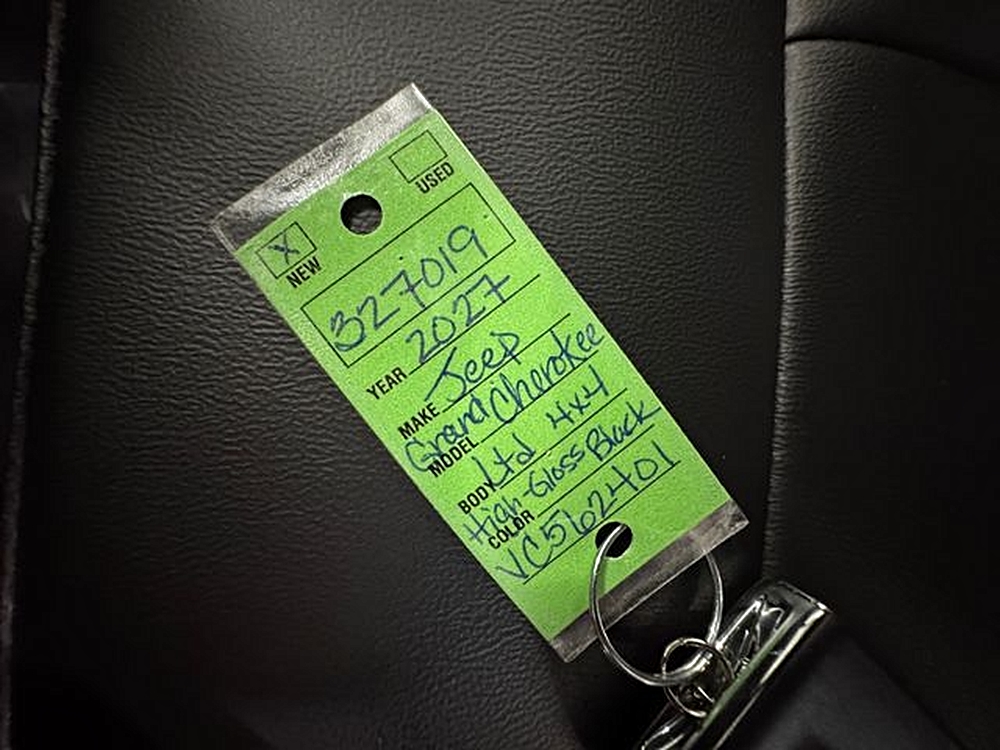 USED
X NEW
327019
YEAR 2027
MAKE Jeep
MODEL Grand Cherokee
BODY Ltd 4x4
COLOR High-Gloss Black
VC562401